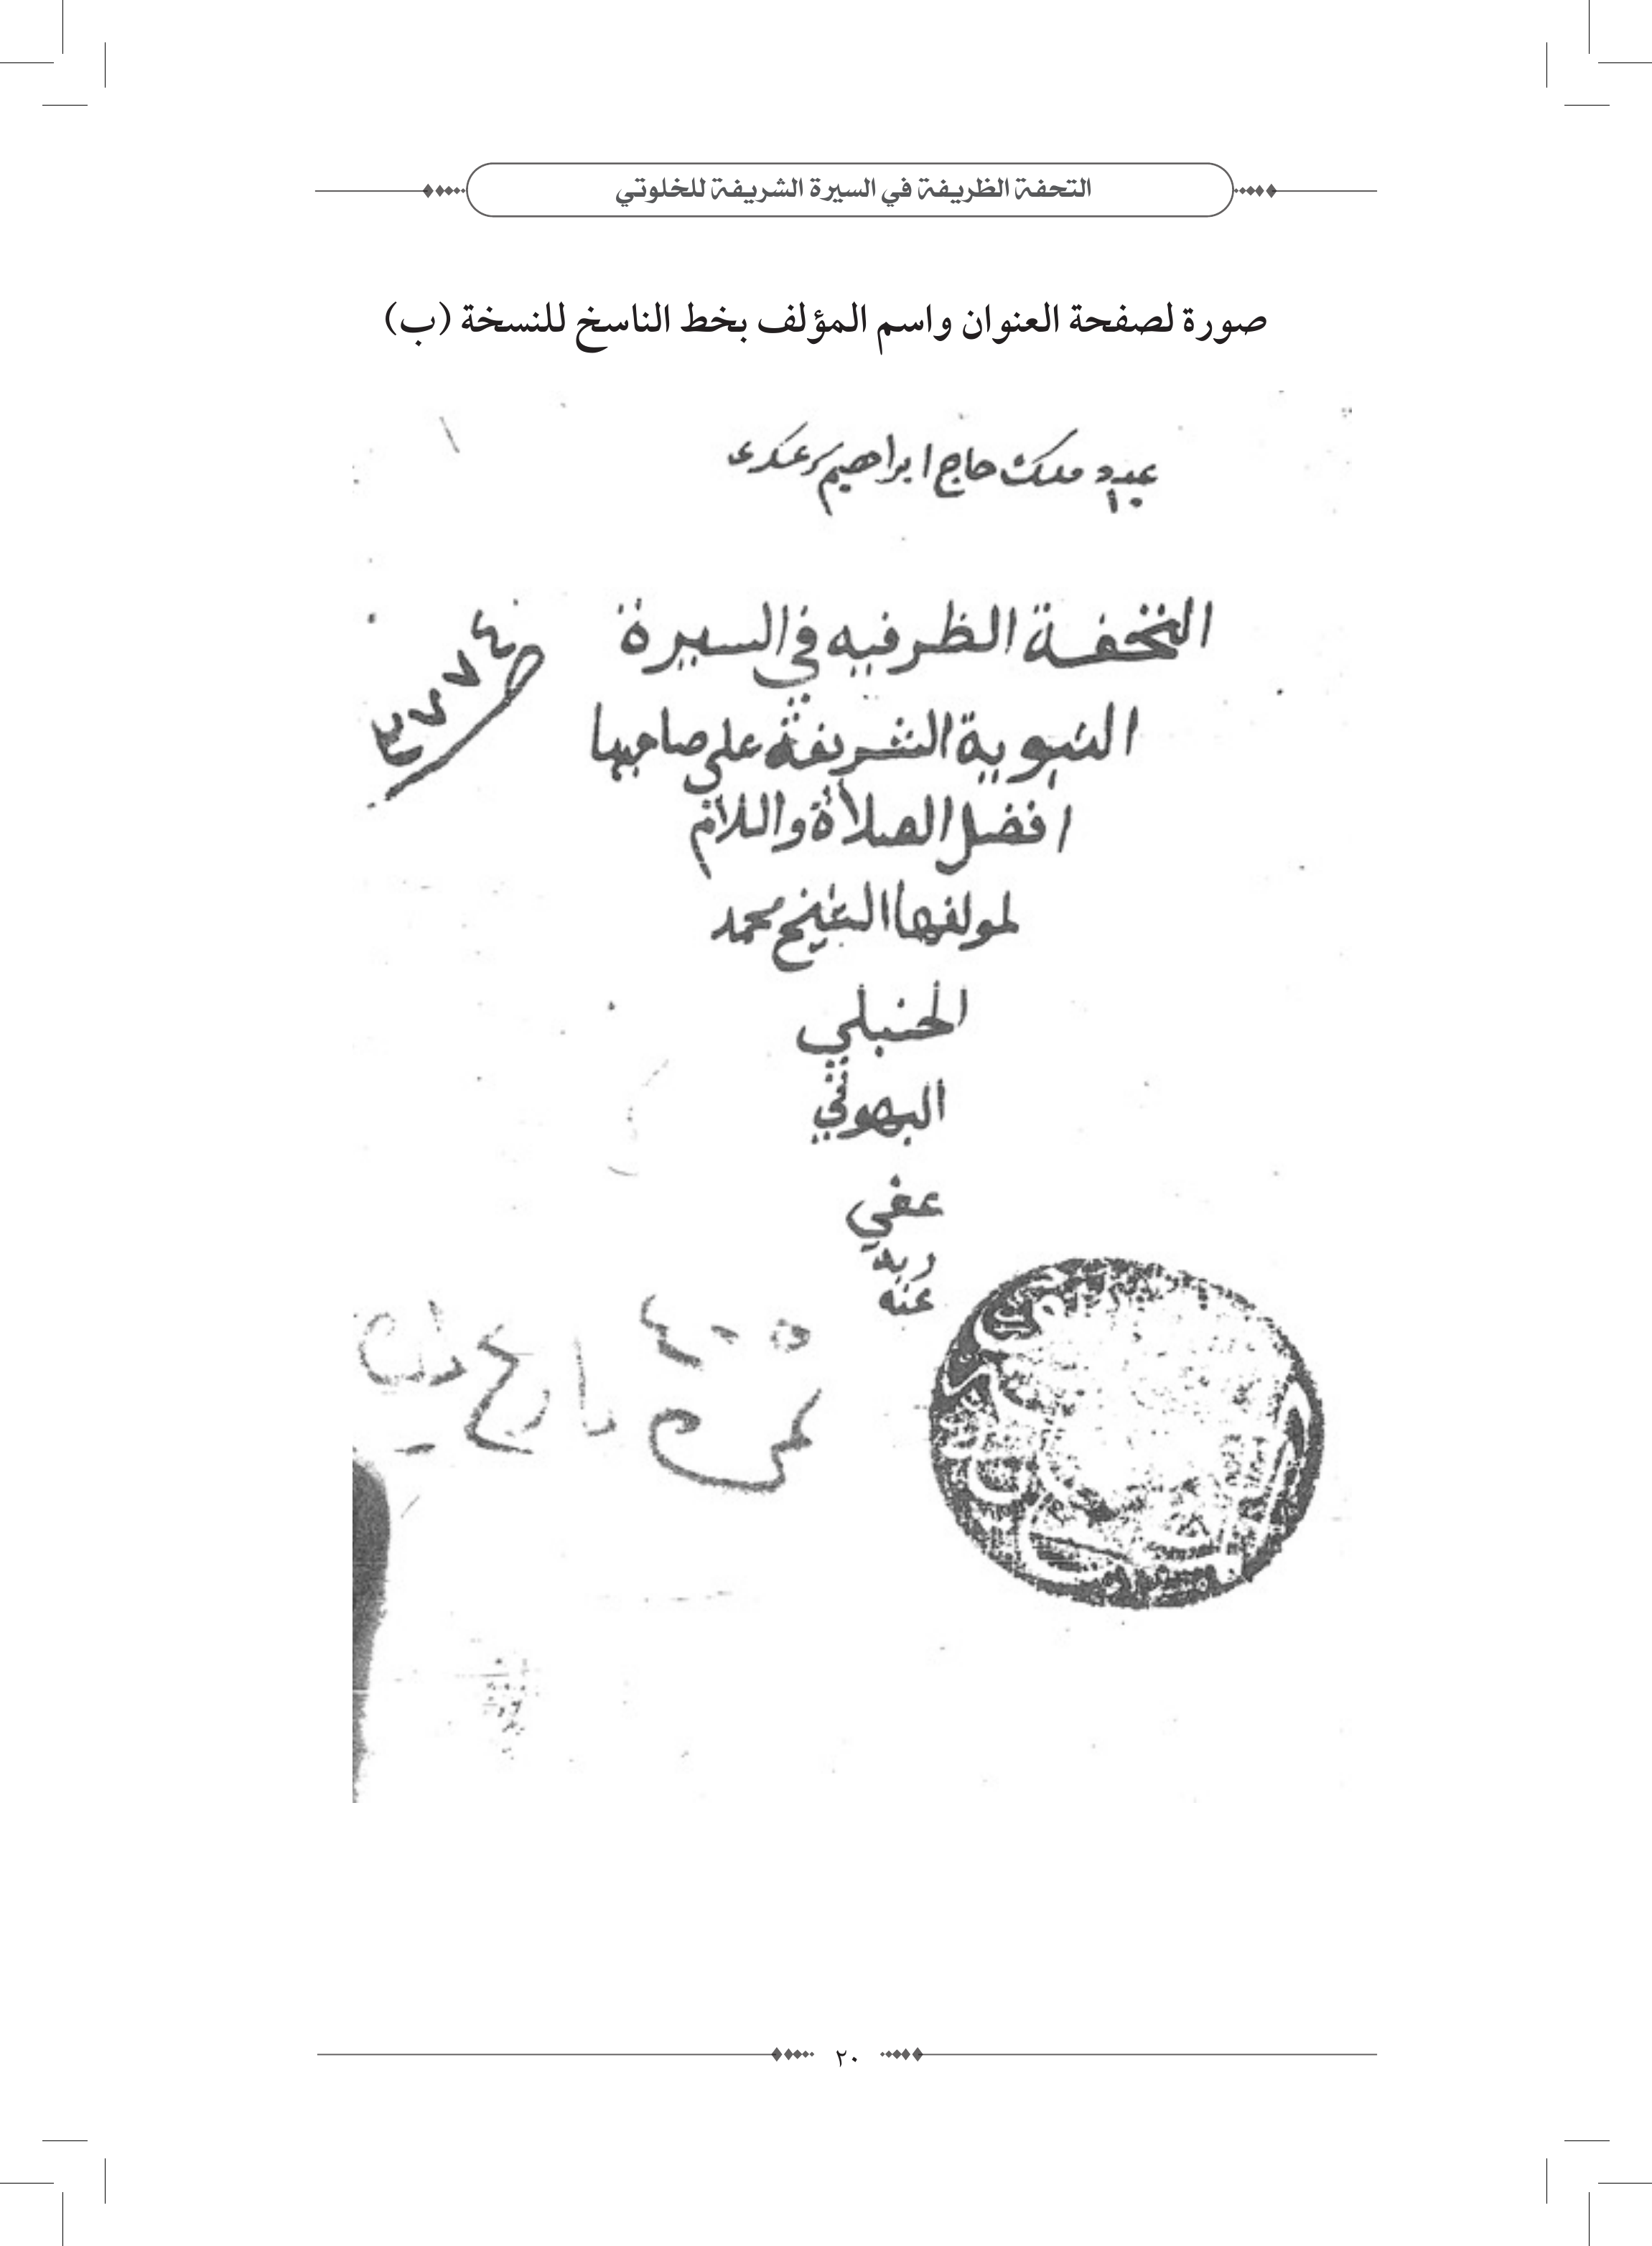 التحفة الظريفة في السيرة الشريفة للخلوتي
صورة لصفحة العنوان واسم المؤلف بخط الناسخ للنسخة (ب)
ملك حاج ابراهيم
التحفة الظرفيه في السيرة
النبوية الشريفة على صاحبها
افضل الصلاة واللام
لمولفها الشيخ محمد
الحنبلي
البهوتي
عفي
ربه
عنه
نمرة
تاريخ
٢٠